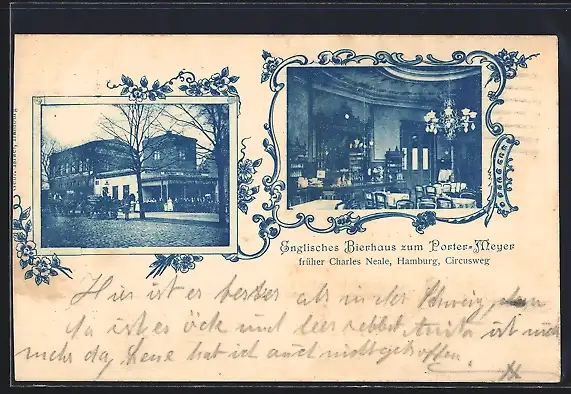 Englisches Bierhaus zum Porter-Meyer
früher Charles Neale, Hamburg, Circusweg
Hier ist er besser als in der Schweiz, denn
da ist es öde und leer selbst ist
mehr da, Lene hat ich auch nicht getroffen.